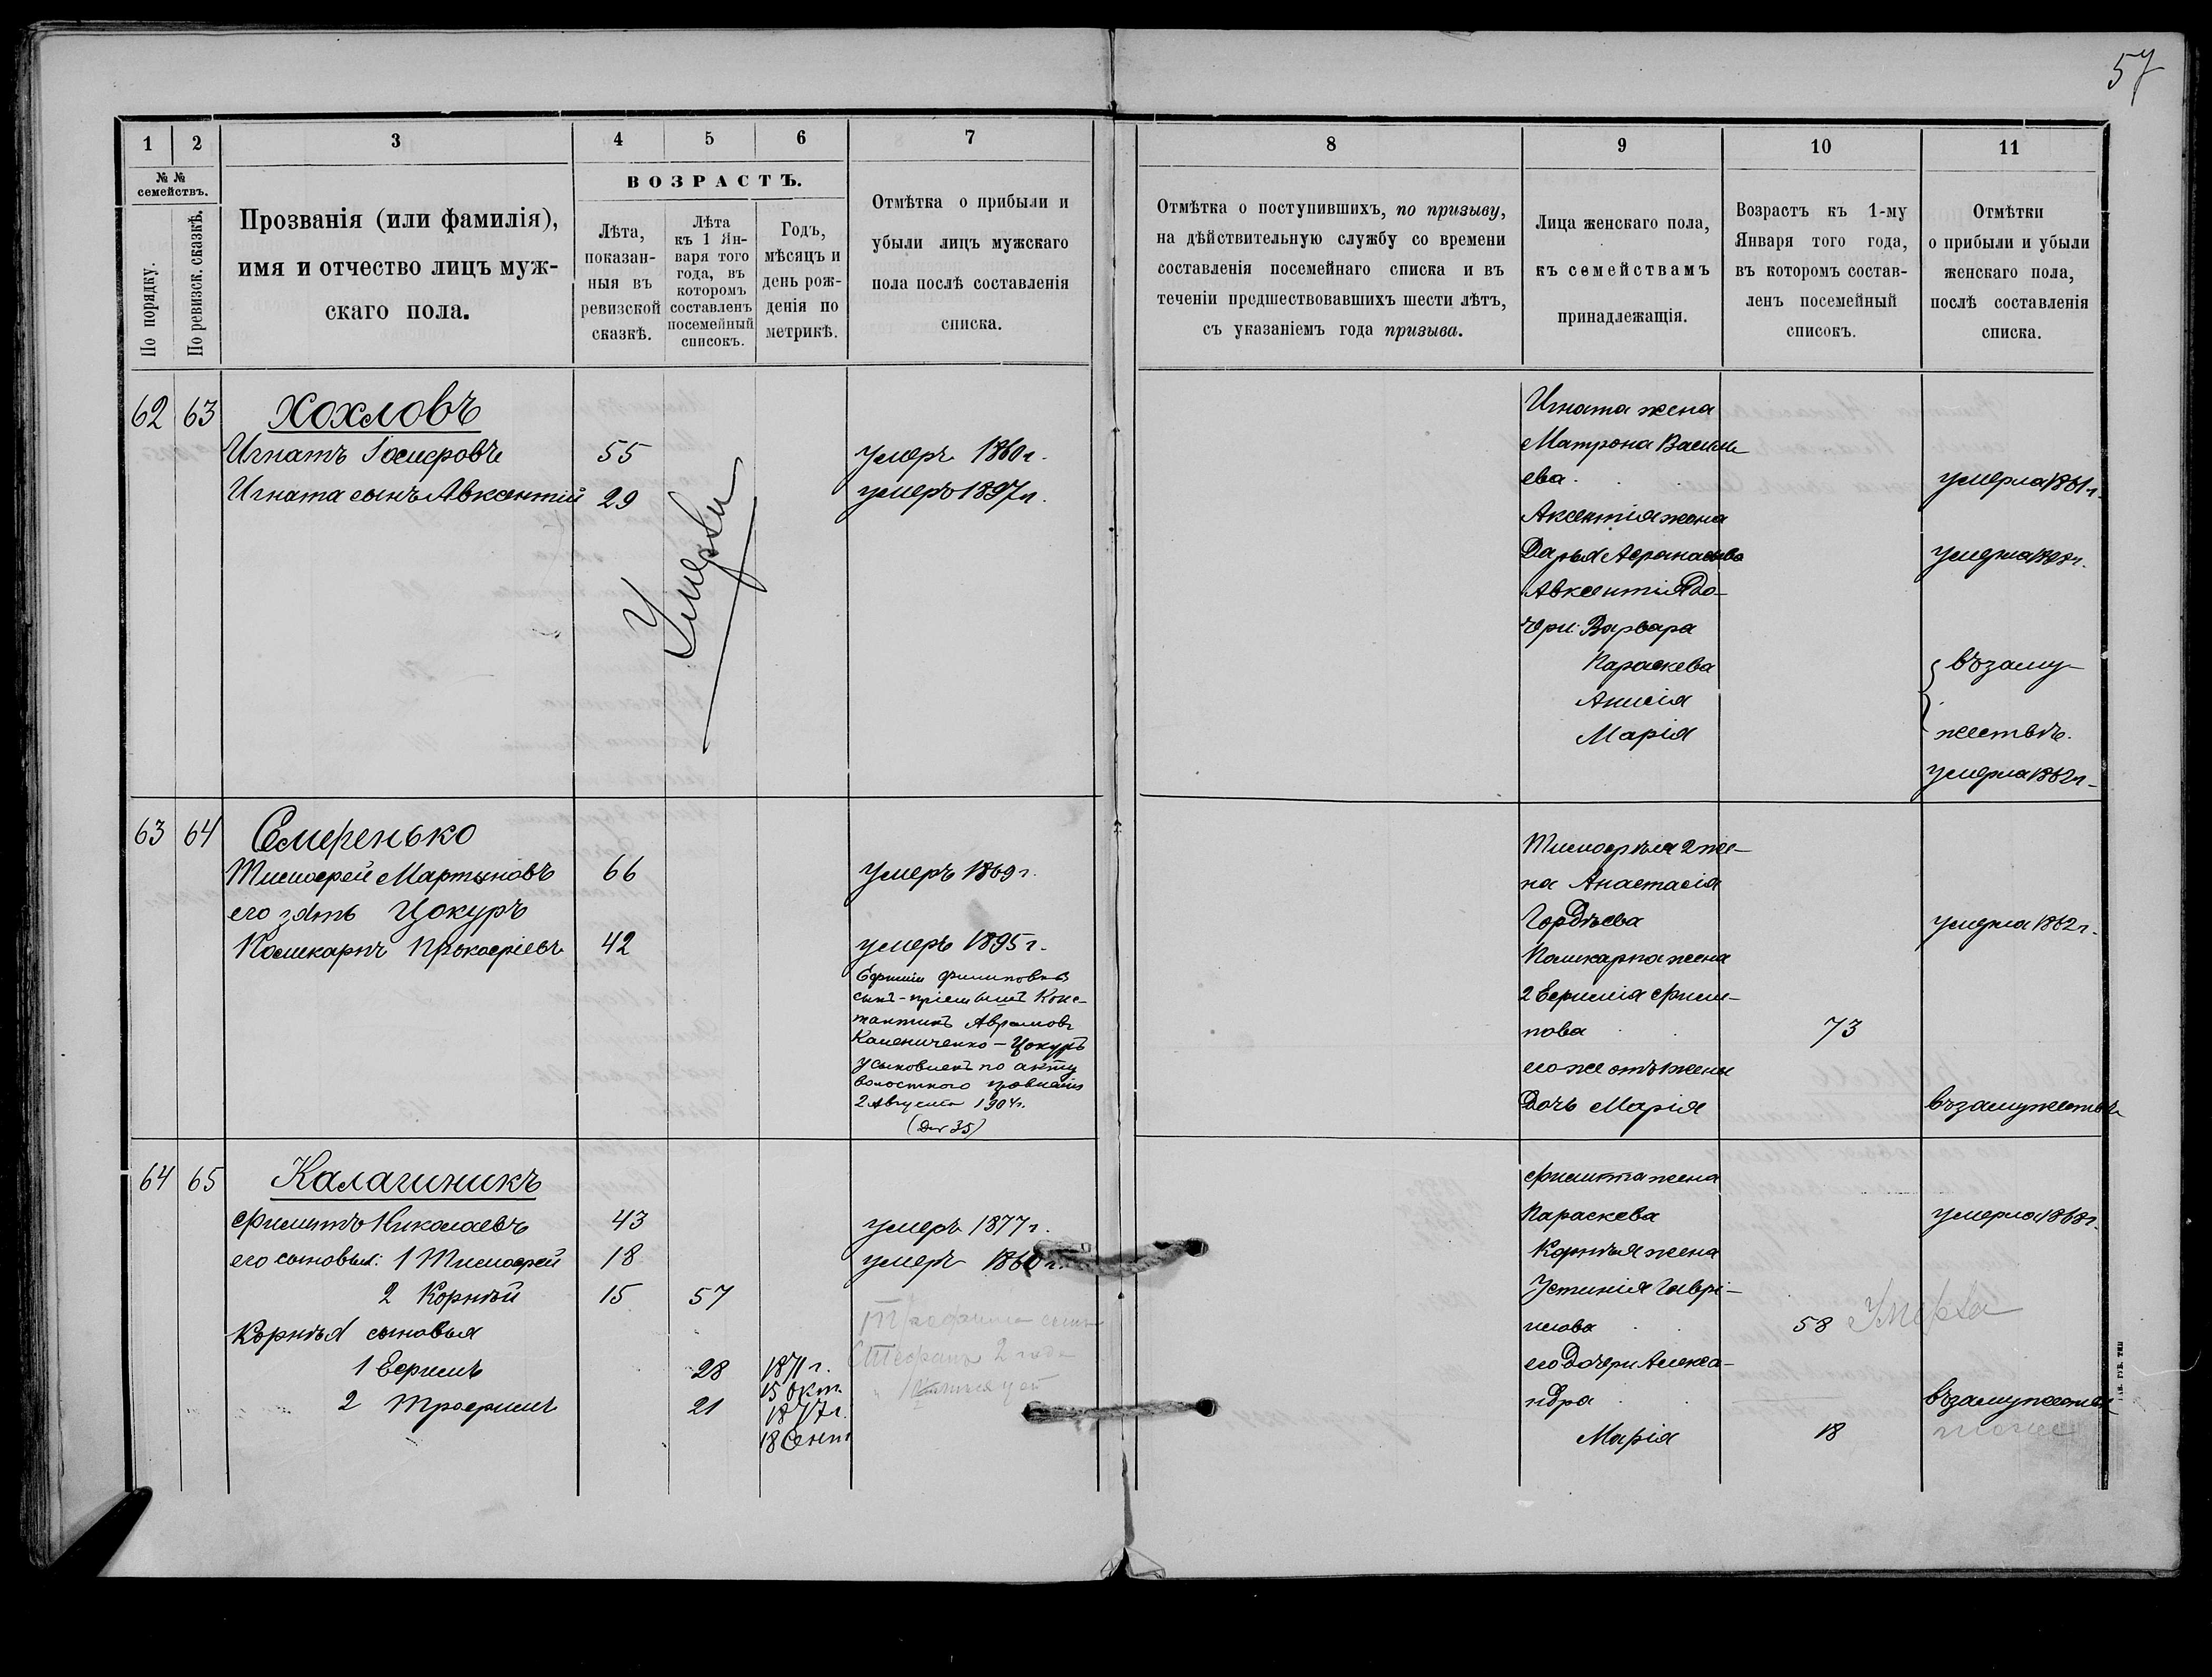 57
1
2
3
4
5
6
7
№ №
семействъ.
По порядку.
По ревизск. сказкѣ.
Прозванія (или фамилія),
имя и отчество лицъ муж-
скаго пола.
ВОЗРАСТЪ.
Лѣта,
показан-
ныя въ
ревизской
сказкѣ.
Лѣта
къ 1 Ян-
варя того
года, въ
которомъ
составленъ
посемейный
списокъ.
Годъ,
мѣсяцъ и
день рож-
денія по
метрикѣ.
Отмѣтка о прибыли и
убыли лицъ мужскаго
пола послѣ составленія
списка.
62 63 Хохловъ
Игнатъ 55 умеръ 1860 г.
Игната сынъ Авксентій 29 умеръ 1897 г.
Умерли
63 64 Семеренько
Тимофей Мартыновъ 66 умеръ 1869 г.
его зять Цокуръ
Поликарпъ Прокофіевъ 42 умеръ 1895 г.
Ефиміи Филиповны
сынъ-пріемышъ Конс-
тантинъ Аврамовъ
Камениченко-Цокуръ
усыновленъ по акту
волостного правленія
2 Августа 1904 г.
64 65 Калагиникъ
Филиппъ Николаевъ 43 умеръ 1877 г.
его сыновья: 1 Тимофей 18 умеръ 1860 г.
2 Корнѣй 15 57
Корнѣя сыновья
1 Ефимъ 28 1871 г.
15 Окт.
2 Трофимъ 21
18 Сент
Трофима сынъ
2 года
8
9
10
11
Отмѣтка о поступившихъ, по призыву,
на дѣйствительную службу со времени
составленія посемейнаго списка и въ
теченіи предшествовавшихъ шести лѣтъ,
съ указаніемъ года призыва.
Лица женскаго пола,
къ семействамъ
принадлежащія.
Возрастъ къ 1-му
Января того года,
въ которомъ состав-
ленъ посемейный
списокъ.
Отмѣтки
о прибыли и убыли
женскаго пола,
послѣ составленія
списка.
Игната жена
Матрона Васили
ева умерла 1861 г.
Аксентія жена
Дарья Афанасьева умерла
Авксентія до-
чери: Варвара
Параскева въ заму-
Анисія
Марія жествѣ.
умерла 1862 г.
Тимофѣя 2 же-
на Анастасія
Гордѣева умерла 1862 г.
Поликарпа жена
2 Ефимія Фили-
пова 73
его же отъ жены
дочь Марія въ замужествѣ
Филиппа жена
Параскева умерла 1868 г.
Корнѣя жена
Устинія Гаврі-
илова 58 Умерла
его дочери Алекса-
ндра въ замужествѣ
Марія 18 тоже